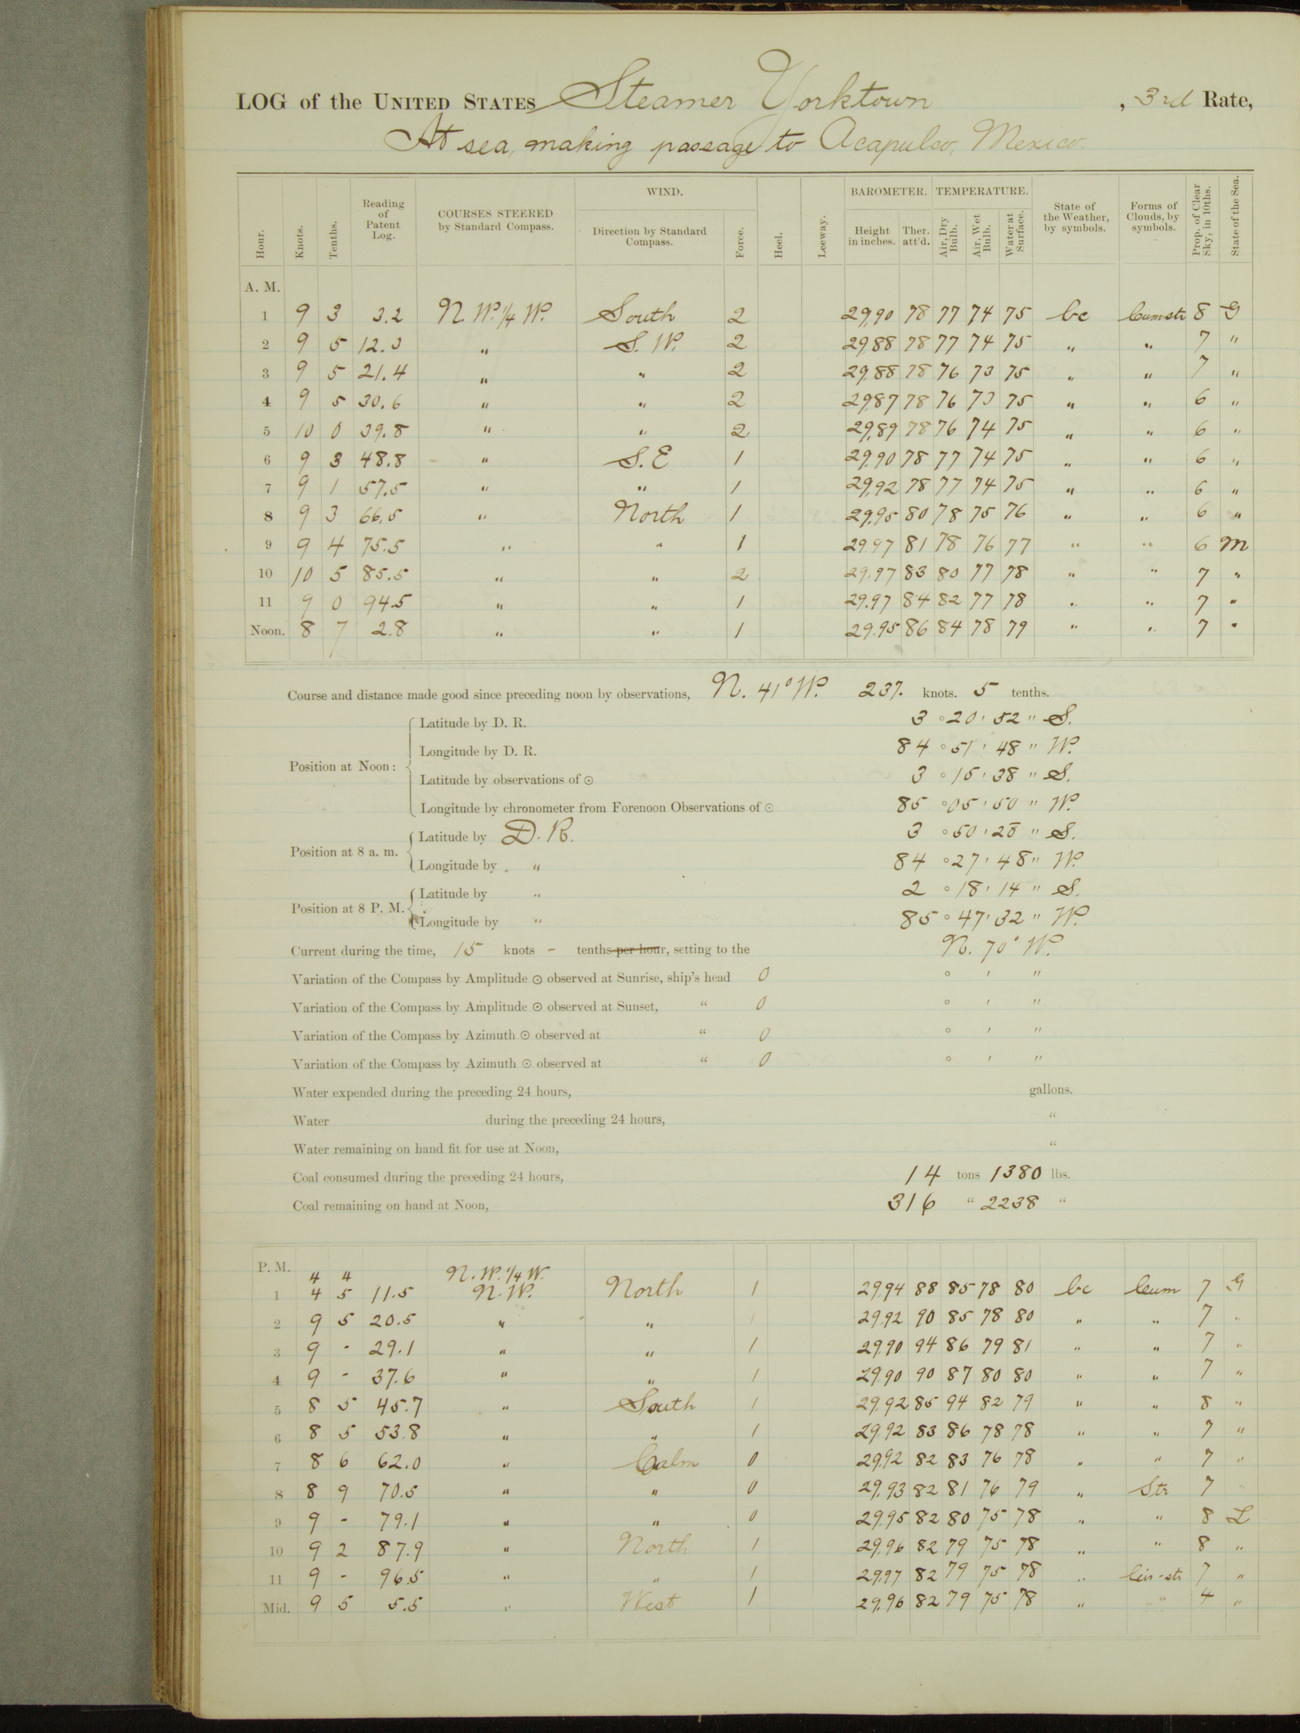 LOG of the UNITED STATES Steamer Yorktown , 3rd Rate,
At sea, making passage to Acapulco, Mexico.
Hour. Knots. Tenths. Reading of Patent Log. COURSES STEERED by Standard Compass. WIND. Direction by Standard Compass. Force. Heel. Leeway. BAROMETER. Height in inches. Ther. att'd. TEMPERATURE. Air, Dry Bulb. Air, Wet Bulb. Water at Surface. State of the Weather, by symbols. Forms of Clouds, by symbols. Prop. of Clear Sky, in 10ths. State of the Sea.
A. M.
1 9 3 3.2 N. W. 1/4 W. South 2 29.90 78 77 74 75 bc Cum str 8 G
2 9 5 12.3 " S. W. 2 29.88 78 77 74 75 " " 7 "
3 9 5 21.4 " " 2 29.88 78 76 73 75 " " 7 "
4 9 5 30.6 " " 2 29.87 78 76 73 75 " " 6 "
5 10 0 39.8 " " 2 29.89 78 76 74 75 " " 6 "
6 9 3 48.8 " S. E 1 29.90 78 77 74 75 " " 6 "
7 9 1 57.5 " " 1 29.92 78 77 74 75 " " 6 "
8 9 3 66.5 " North 1 29.95 80 78 75 76 " " 6 "
9 9 4 75.5 " " 1 29.97 81 78 76 77 " " 6 M
10 10 5 85.5 " " 2 29.97 83 80 77 78 " " 7 "
11 9 0 94.5 " " 1 29.97 84 82 77 78 " " 7 "
Noon. 8 7 2.8 " " 1 29.95 86 84 78 79 " " 7 "
Course and distance made good since preceding noon by observations, N. 41° W. 237. knots. 5 tenths.
Position at Noon:
Latitude by D. R. 3 ° 20 ' 52 " S.
Longitude by D. R. 84 ° 51 ' 48 " W.
Latitude by observations of ☉ 3 ° 15 ' 38 " S.
Longitude by chronometer from Forenoon Observations of ☉ 85 ° 05 ' 50 " W.
Position at 8 a. m.
Latitude by D. R. 3 ° 50 ' 28 " S.
Longitude by " 84 ° 27 ' 48 " W.
Position at 8 P. M.
Latitude by " 2 ° 18 ' 14 " S.
Longitude by " 85 ° 47 ' 32 " W.
Current during the time, 15 knots - tenths per hour, setting to the N. 70° W.
Variation of the Compass by Amplitude ☉ observed at Sunrise, ship's head 0 ° ' "
Variation of the Compass by Amplitude ☉ observed at Sunset, " 0 ° ' "
Variation of the Compass by Azimuth ☉ observed at " 0 ° ' "
Variation of the Compass by Azimuth ☉ observed at " 0 ° ' "
Water expended during the preceding 24 hours, gallons.
Water during the preceding 24 hours, "
Water remaining on hand fit for use at Noon, "
Coal consumed during the preceding 24 hours, 14 tons 1380 lbs.
Coal remaining on hand at Noon, 316 " 2238 "
P. M.
4 4 N. W. 1/4 W.
1 4 5 11.5 N. W. North 1 29.94 88 85 78 80 bc Cum 7 G
2 9 5 20.5 " " 1 29.92 90 85 78 80 " " 7 "
3 9 - 29.1 " " 1 29.90 94 86 79 81 " " 7 "
4 9 - 37.6 " " 1 29.90 90 87 80 80 " " 7 "
5 8 5 45.7 " South 1 29.92 85 94 82 79 " " 8 "
6 8 5 53.8 " " 1 29.92 83 86 78 78 " " 7 "
7 8 6 62.0 " Calm 0 29.92 82 83 76 78 " " 7 "
8 8 9 70.5 " " 0 29.93 82 81 76 79 " Str 7 "
9 9 - 79.1 " " 0 29.95 82 80 75 78 " " 8 L
10 9 2 87.9 " North 1 29.96 82 79 75 78 " " 8 "
11 9 - 96.5 " " 1 29.97 82 79 75 78 " Cir-str 7 "
Mid. 9 5 5.5 " West 1 29.96 82 79 75 78 " " 4 "